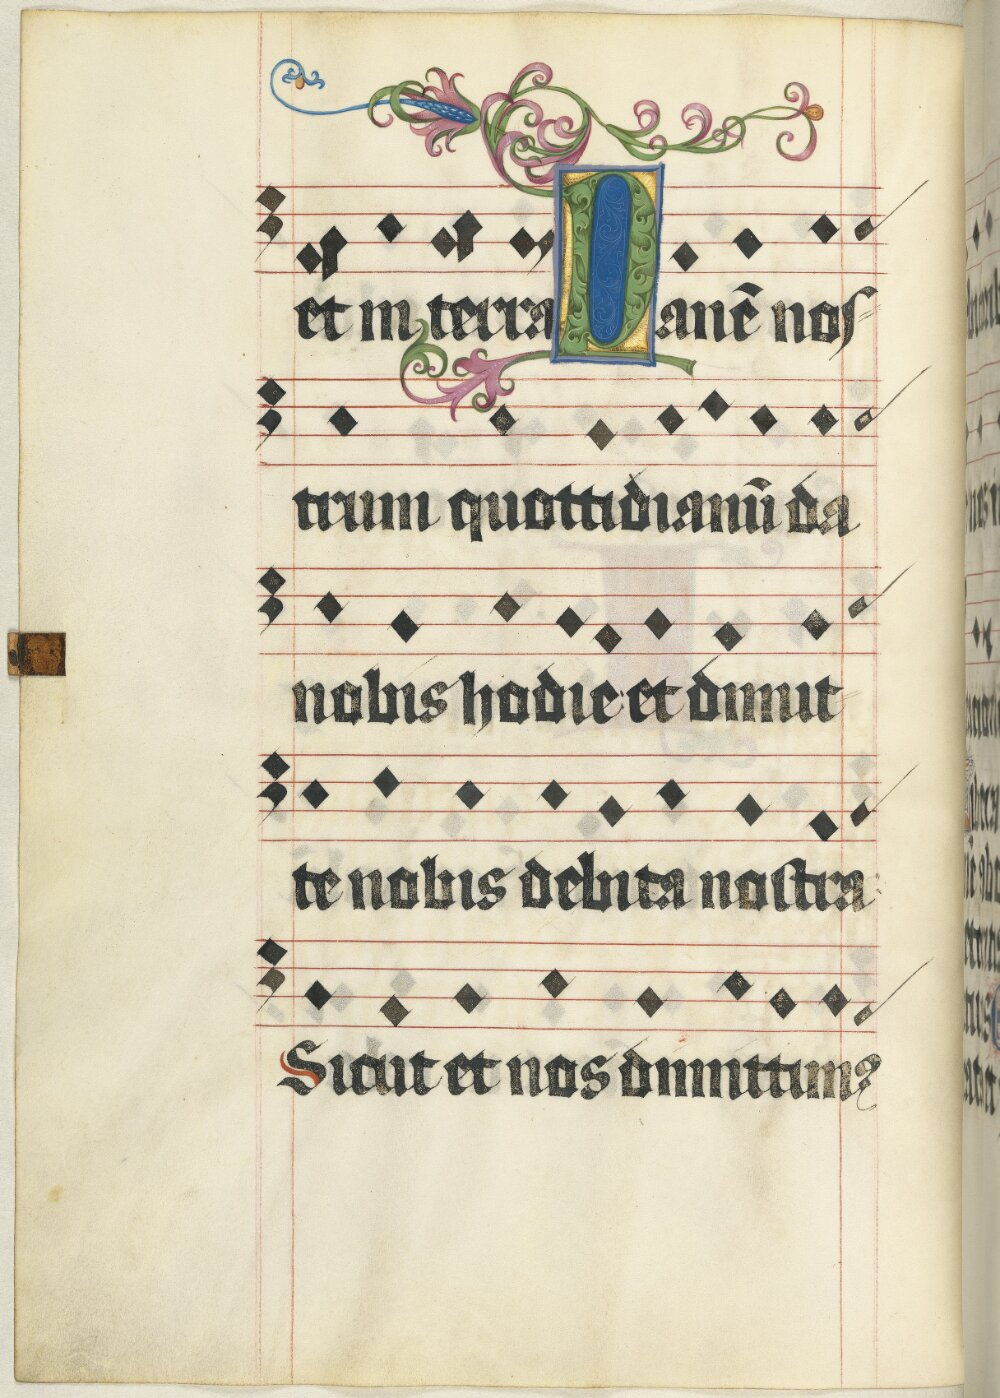 et in terra Panē nos
trum quottidianū da
nobis hodie et dimit
te nobis debita nostra
Sicut et nos dimittimꝰ